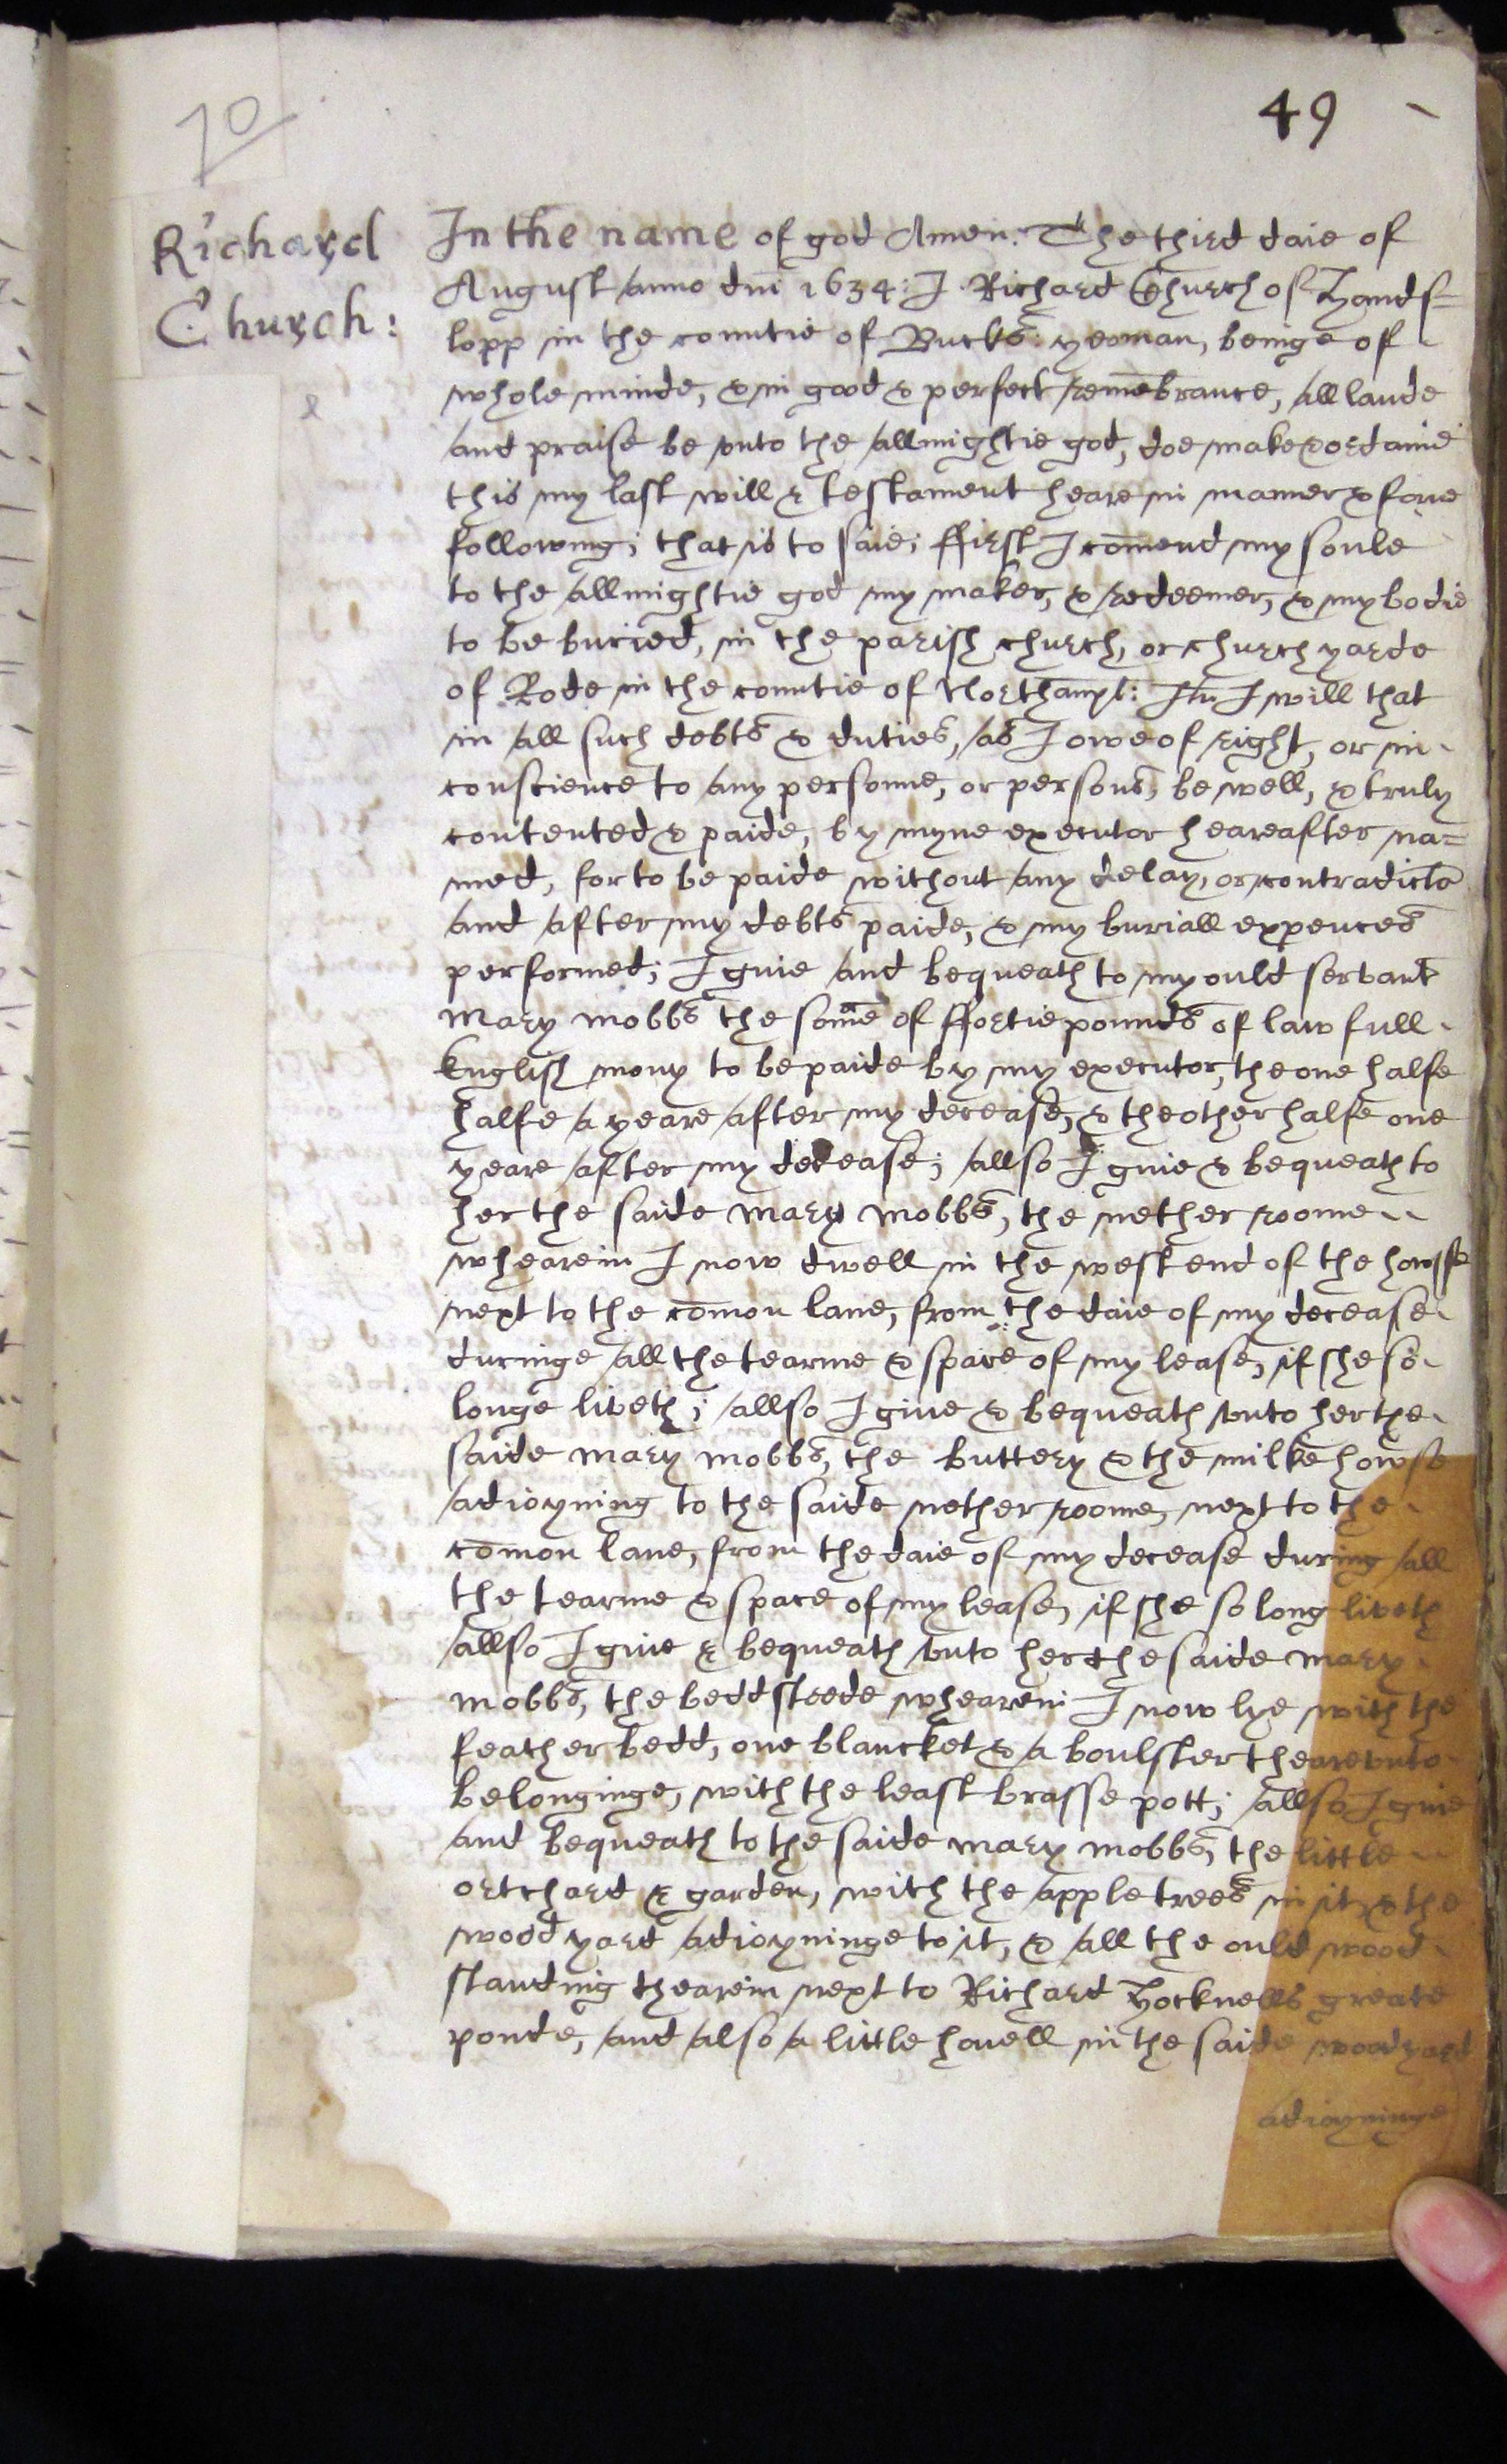 70
49
Richard
Church:
In the name of god Amen. The third daie of
August anno dni 1634: I Richard Church of Hands=
lopp in the countie of Bucks: yeoman, beinge of
whole minde, & in good & perfect remēbrance, all laude
and praise be vnto the allmightie god, doe make & ordaine
this my last will & testament heare in manner & forme
following; that is to saie; ffirst I cōmend my soule
to the allmightie god my maker, & redeemer, & my bodie
to be buried, in the parish church, or church yarde
of Rode in the countie of Northampt: Itm I will that
in all such debts & duties, as I owe of right, or in
conscience to any personne, or persons, be well, & truly
contented & paide, by myne executor heareafter na=
med, for to be paide without any delay, or contradictō
and after my debts paide, & my buriall expences
performed; I giue and bequeath to my ould servant
Mary Mobbs the some of ffortie pounds of lawfull
English mony to be paide by my executor, the one halfe
halfe a yeare after my decease, & the other halfe one
yeare after my decease; allso I giue & bequeath to
her the saide Mary Mobbs, the nether roome
whearein I now dwell in the west end of the howsse
next to the cōmon lane, from the daie of my decease
duringe all the tearme & space of my lease, if she so
longe liveth; allso I giue & bequeath vnto her the
saide Mary Mobbs, the buttery & the milke howse
adioyning to the saide nether roome, next to the
cōmon lane, from the daie of my decease during all
the tearme & space of my lease, if she so long liveth
allso I giue & bequeath vnto her the saide Mary
Mobbs, the beddsteede whearein I now lye with the
featherbedd, one blancket & a boulster thearevnto
belonginge, with the least brasse pott; allso I giue
and bequeath to the saide Mary Mobbs, the little
ortchard & garden, with the apple trees in it, & the
wood yard adioyninge to it, & all the ould wood
standing thearein next to Richard Hocknells greate
ponde, and also a little hovell in the saide woodyard
adioyninge